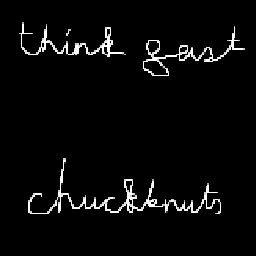 think fast
chucknuts